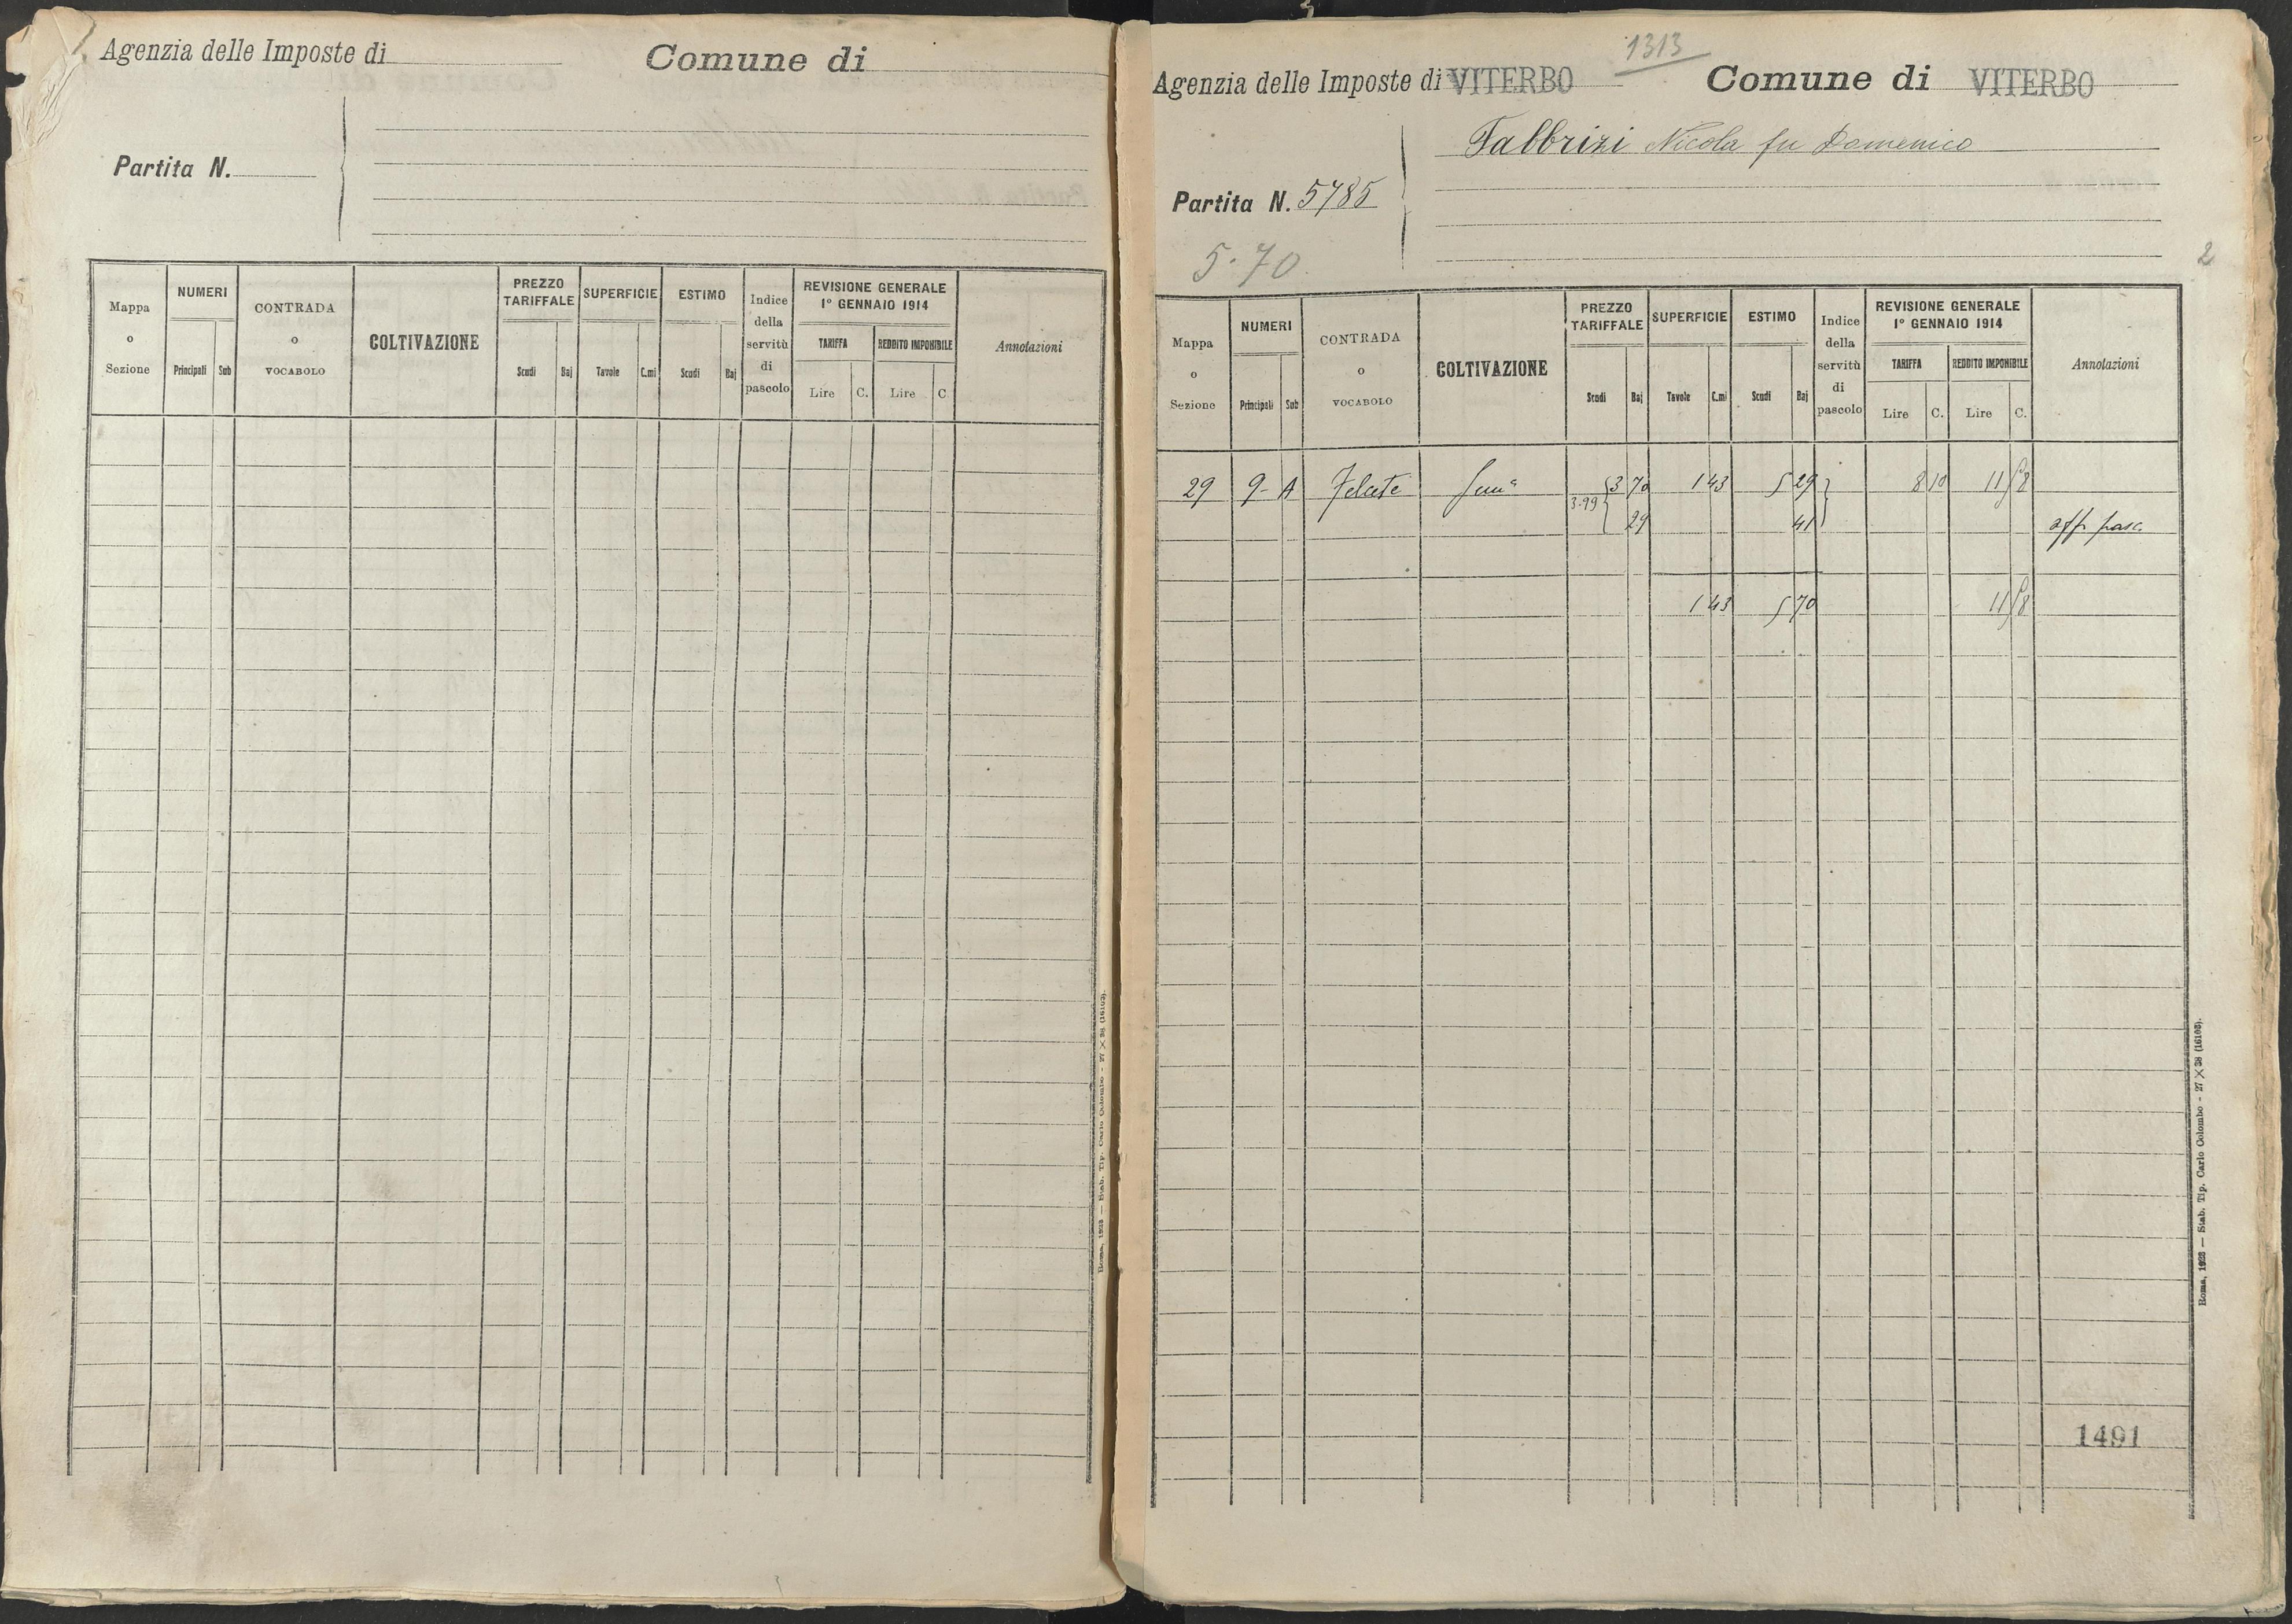 Agenzia delle Imposte di
Comune di
Partita N.
Mappa o Sezione
NUMERI
Principali
Sub
CONTRADA o VOCABOLO
COLTIVAZIONE
PREZZO TARIFFALE
Scudi
Baj
SUPERFICIE
Tavole
C.mi
ESTIMO
Scudi
Baj
Indice della servitù di pascolo
REVISIONE GENERALE
1° GENNAIO 1914
TARIFFA
REDDITO IMPONIBILE
Lire
C.
Lire
C
Annotazioni
Roma, 1923 — Stab. Tip. Carlo Colombo - 27 × 38 (16103).
1313
Agenzia delle Imposte di VITERBO
Comune di VITERBO
Fabbrizi Nicola fu Domenico
Partita N. 5785
5.70
2
Mappa o Sezione
NUMERI
Principali
Sub
CONTRADA o VOCABOLO
COLTIVAZIONE
PREZZO TARIFFALE
Scudi
Baj
SUPERFICIE
Tavole
C.mi
ESTIMO
Scudi
Baj
Indice della servitù di pascolo
REVISIONE GENERALE
1° GENNAIO 1914
TARIFFA
REDDITO IMPONIBILE
Lire
C.
Lire
C.
Annotazioni
29 9- A 3.99 3 70 1 43 5 29 8 10 11 58
29 41 aff. pasc.
1 43 5 70 11 58
Roma, 1923 — Stab. Tip. Carlo Colombo - 27 × 38 (16103).
1491